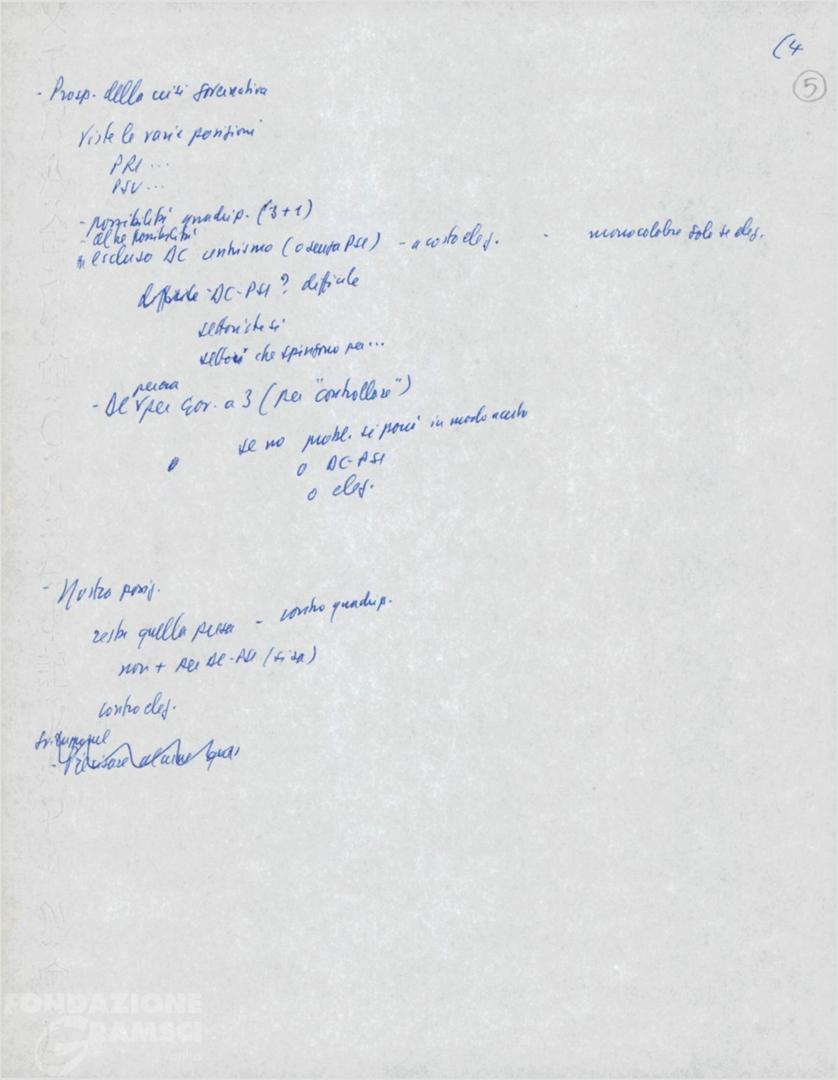 (4
5
- Prosp. della crisi governativa
Viste le varie posizioni
PRI ...
PSU ...
- possibilità quadrip. (3+1)
- altre possibilità
escluso DC centrismo (o senza PSI) - a costo elez. - monocolore solo se elez.
DC-PSI? difficile
settori che spingono per...
pensa
- DC per gov. a 3 (per "controllare")
se no probl. si pone in modo acuto
o DC-PSI
o elez.
- Nostra posiz.
resta quella presa - contro quadrip.
non + per DC-PSI (si sa)
contro elez.